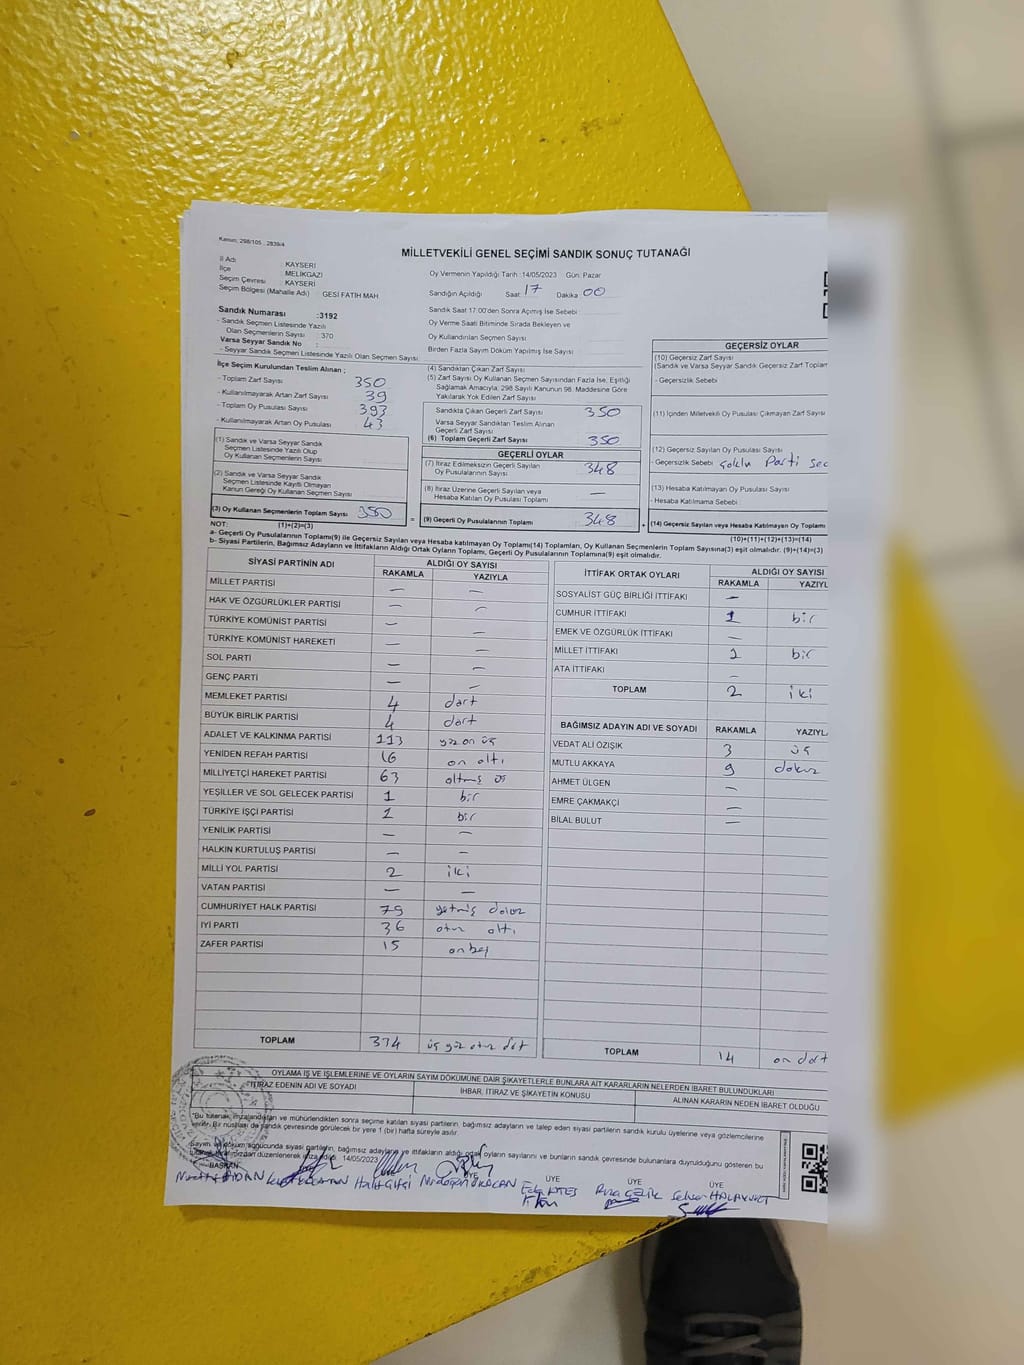 Kanun: 298/105 , 2839/4
MİLLETVEKİLİ GENEL SEÇİMİ SANDIK SONUÇ TUTANAĞI
İl Adı : KAYSERİ
İlçe : MELİKGAZİ
Seçim Çevresi : KAYSERİ
Seçim Bölgesi (Mahalle Adı) : GESİ FATİH MAH
Oy Vermenin Yapıldığı Tarih :14/05/2023 Gün: Pazar
Sandığın Açıldığı Saat: 17 Dakika 00
Sandık Saat 17:00'den Sonra Açımış İse Sebebi :
Oy Verme Saati Bitiminde Sırada Bekleyen ve
Oy Kullandırılan Seçmen Sayısı :
Birden Fazla Sayım Döküm Yapılmış İse Sayısı :
Sandık Numarası :3192
- Sandık Seçmen Listesinde Yazılı
Olan Seçmenlerin Sayısı : 370
Varsa Seyyar Sandık No :
- Seyyar Sandık Seçmen Listesinde Yazılı Olan Seçmen Sayısı :
İlçe Seçim Kurulundan Teslim Alınan ;
- Toplam Zarf Sayısı 350
- Kullanılmayarak Artan Zarf Sayısı 39
- Toplam Oy Pusulası Sayısı 393
- Kullanılmayarak Artan Oy Pusulası 43
(1) Sandık ve Varsa Seyyar Sandık
Seçmen Listesinde Yazılı Olup
Oy Kullanan Seçmenlerin Sayısı
(2) Sandık ve Varsa Seyyar Sandık
Seçmen Listesinde Kayıtlı Olmayan
Kanun Gereği Oy Kullanan Seçmen Sayısı
(3) Oy Kullanan Seçmenlerin Toplam Sayısı 350
(4) Sandıktan Çıkan Zarf Sayısı
(5) Zarf Sayısı Oy Kullanan Seçmen Sayısından Fazla İse, Eşitliği
Sağlamak Amacıyla, 298 Sayılı Kanunun 98. Maddesine Göre
Yakılarak Yok Edilen Zarf Sayısı
Sandıkta Çıkan Geçerli Zarf Sayısı 350
Varsa Seyyar Sandıktan Teslim Alınan
Geçerli Zarf Sayısı
(6) Toplam Geçerli Zarf Sayısı 350
GEÇERLİ OYLAR
(7) İtiraz Edilmeksizin Geçerli Sayılan
Oy Pusulalarının Sayısı 348
(8) İtiraz Üzerine Geçerli Sayılan veya
Hesaba Katılan Oy Pusulası Toplamı —
= (9) Geçerli Oy Pusulalarının Toplamı 348
GEÇERSİZ OYLAR
(10) Geçersiz Zarf Sayısı
(Sandık ve Varsa Seyyar Sandık Geçersiz Zarf Toplam
- Geçersizlik Sebebi
(11) İçinden Milletvekili Oy Pusulası Çıkmayan Zarf Sayısı
(12) Geçersiz Sayılan Oy Pusulası Sayısı
- Geçersizlik Sebebi çoklu Parti sec
(13) Hesaba Katılmayan Oy Pusulası Sayısı
- Hesaba Katılmama Sebebi
+ (14) Geçersiz Sayılan veya Hesaba Katılmayan Oy Pusulası Toplamı
NOT: (1)+(2)=(3) (10)+(11)+(12)+(13)=(14)
a- Geçerli Oy Pusulalarının Toplamı(9) ile Geçersiz Sayılan veya Hesaba Katılmayan Oy Pusulası Toplamı(14) Toplamları, Oy Kullanan Seçmenlerin Toplam Sayısına(3) eşit olmalıdır. (9)+(14)=(3)
b- Siyasi Partilerin, Bağımsız Adayların ve İttifakların Aldığı Ortak Oyların Toplamı, Geçerli Oy Pusulalarının Toplamına(9) eşit olmalıdır.
SİYASİ PARTİNİN ADI ALDIĞI OY SAYISI
RAKAMLA YAZIYLA
MİLLET PARTİSİ — —
HAK VE ÖZGÜRLÜKLER PARTİSİ — —
TÜRKİYE KOMÜNİST PARTİSİ —
TÜRKİYE KOMÜNİST HAREKETİ — —
SOL PARTİ — —
GENÇ PARTİ — —
MEMLEKET PARTİSİ 4 dört
BÜYÜK BİRLİK PARTİSİ 4 dört
ADALET VE KALKINMA PARTİSİ 113 yüz on üç
YENİDEN REFAH PARTİSİ 16 on altı
MİLLİYETÇİ HAREKET PARTİSİ 63 altmış üç
YEŞİLLER VE SOL GELECEK PARTİSİ 1 bir
TÜRKİYE İŞÇİ PARTİSİ 1 bir
YENİLİK PARTİSİ — —
HALKIN KURTULUŞ PARTİSİ — —
MİLLİ YOL PARTİSİ 2 iki
VATAN PARTİSİ — —
CUMHURİYET HALK PARTİSİ 79 yetmiş dokuz
İYİ PARTİ 36 otuz altı
ZAFER PARTİSİ 15 onbeş
TOPLAM 334 üç yüz otuz dört
İTTİFAK ORTAK OYLARI ALDIĞI OY SAYISI
RAKAMLA YAZIYL
SOSYALİST GÜÇ BİRLİĞİ İTTİFAKI —
CUMHUR İTTİFAKI 1 bir
EMEK VE ÖZGÜRLÜK İTTİFAKI —
MİLLET İTTİFAKI 1 bir
ATA İTTİFAKI —
TOPLAM 2 iki
BAĞIMSIZ ADAYIN ADI VE SOYADI RAKAMLA YAZIYL
VEDAT ALİ ÖZIŞIK 3 üç
MUTLU AKKAYA 9 dokuz
AHMET ÜLGEN —
EMRE ÇAKMAKÇİ —
BİLAL BULUT —
TOPLAM 14 on dört
OYLAMA İŞ VE İŞLEMLERİNE VE OYLARIN SAYIM DÖKÜMÜNE DAİR ŞİKAYETLERLE BUNLARA AİT KARARLARIN NELERDEN İBARET BULUNDUKLARI
İTİRAZ EDENİN ADI VE SOYADI
İHBAR, İTİRAZ VE ŞİKAYETİN KONUSU
ALINAN KARARIN NEDEN İBARET OLDUĞU
"Bu tutanak, imzalandıktan ve mühürlendikten sonra seçime katılan siyasi partilerin, bağımsız adayların ve talep eden siyasi partilerin sandık kurulu üyelerine veya gözlemcilerine
verilir. Bir nüshası da sandık çevresinde görülecek bir yere 1 (bir) hafta süreyle asılır.
Sayım ve döküm sonucunda siyasi partilerin, bağımsız adayların ve ittifakların aldığı ortak oyların sayılarını ve bunların sandık çevresinde bulunanlara duyrulduğunu gösteren bu
tutanak tarafımızdan düzenlenerek imza edildi. 14/05/2023
BAŞKAN ÜYE ÜYE ÜYE ÜYE
AYDIN Halil Çifçi Eda ATEŞ ÇELİK